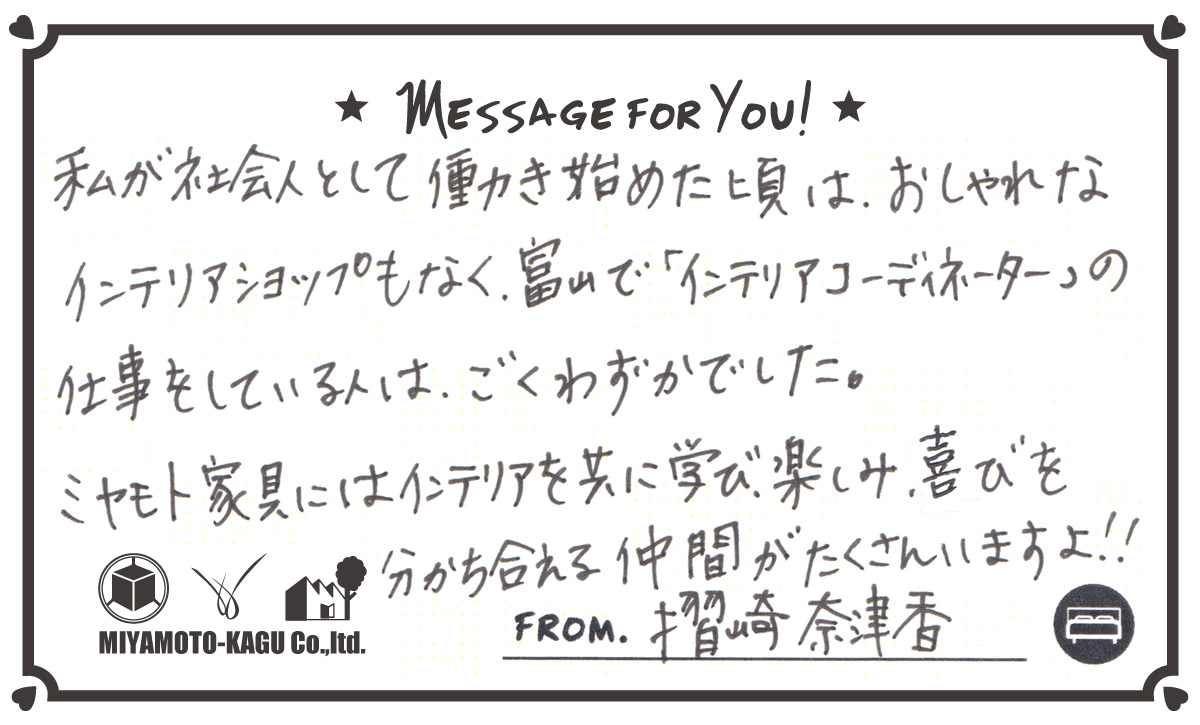 ★ MESSAGE FOR YOU! ★
私が社会人として働き始めた頃は、おしゃれな
インテリアショップもなく、富山で「インテリアコーディネーター」の
仕事をしている人は、ごくわずかでした。
ミヤモト家具にはインテリアを共に学び、楽しみ、喜びを
分かち合える仲間がたくさんいますよ!!
MIYAMOTO-KAGU Co.,ltd.
FROM. 摺崎 奈津香